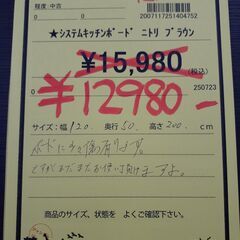 程度 中古
2007117251404752
★システムキッチンボード ニトリ ブラウン
¥15,980(税込)
¥12980-
250723
サイズ:幅120. 奥行50. 高さ200. cm
ボードに多少傷有ります。
ですがまだまだお使い頂けますよ。
商品のサイズ、状態を よくご確認下さい。